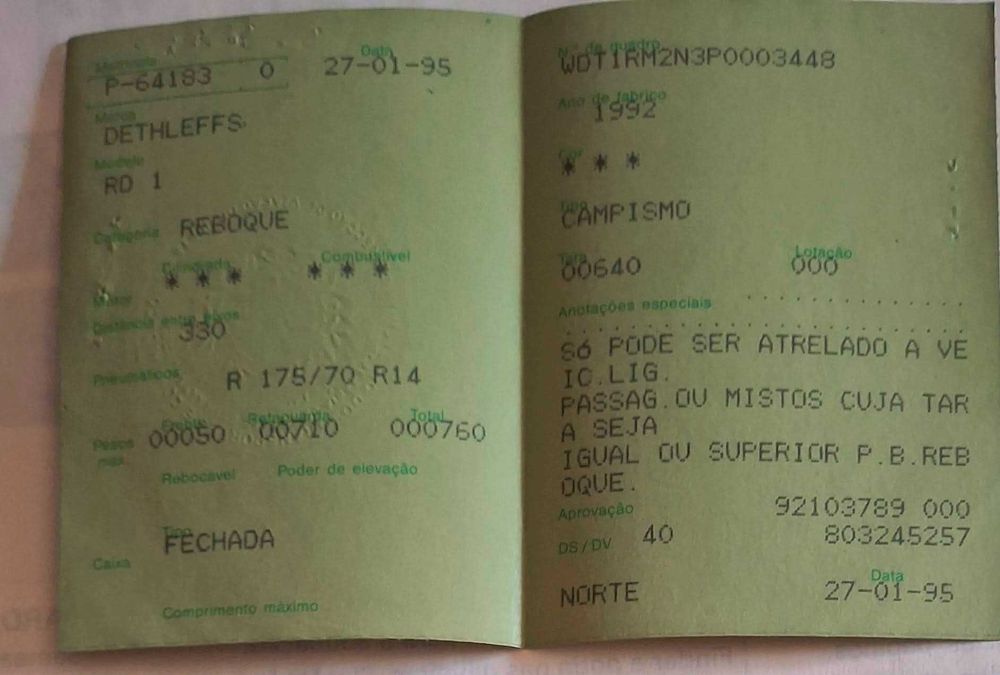 Matrícula Data
P-64183 0 27-01-95
Marca
DETHLEFFS
Modelo
RD 1
Categoria REBOQUE
Cilindrada Combustível
* * * * * *
Motor
Distância entre eixos
330
Pneumáticos R 175/70 R14
Frente Retaguarda Total
Pesos máx. 00050 00710 000760
Rebocável Poder de elevação
Tipo
FECHADA
Caixa
Comprimento máximo
N.º de quadro
WDT1RM2N3P0003448
Ano de fabrico
1992
Cor
* * *
Tipo
CAMPISMO
Tara Lotação
00640 000
Anotações especiais
Só PODE SER ATRELADO A VE
IC.LIG.
PASSAG.OU MISTOS CUJA TAR
A SEJA
IGUAL OU SUPERIOR P.B.REB
OQUE.
Aprovação 92103789 000
DS/DV 40 803245257
Data
NORTE 27-01-95